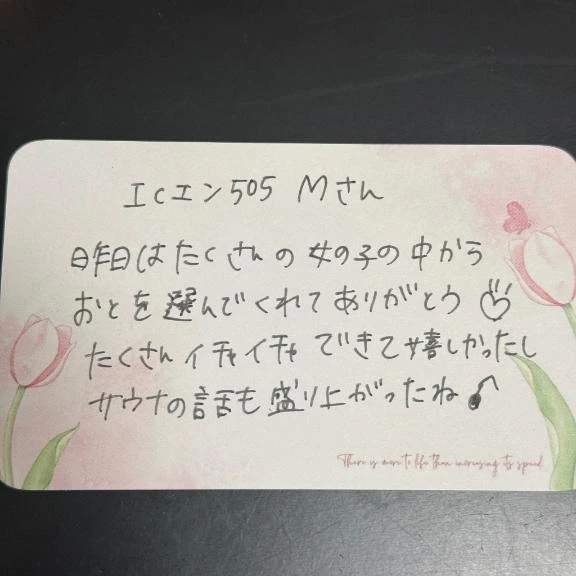 ICエン505 Mさん
昨日はたくさんの女の子の中から
おとを選んでくれてありがとう
たくさんイチャイチャできて嬉しかったし
サウナの話も盛り上がったね♪
There is more to life than increasing its speed.